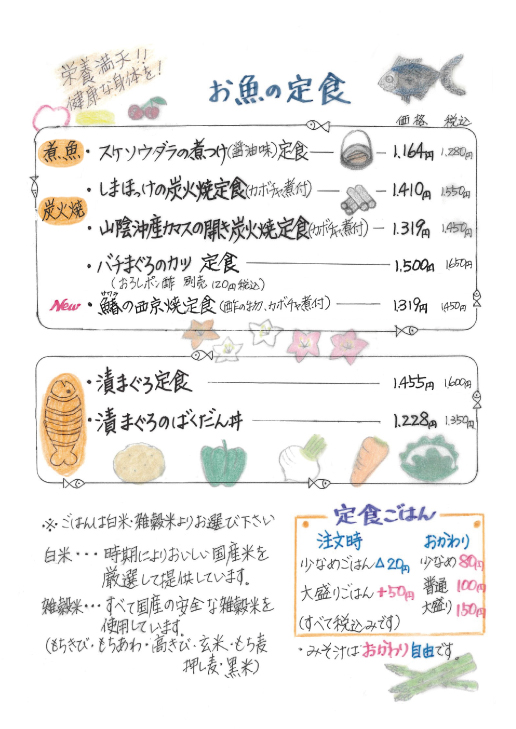 栄養満天!!
健康な身体を!
お魚の定食
価格 税込
煮魚 ・スケソウダラの煮つけ(醤油味)定食 1.164円 1,280円
・しまほっけの炭火焼定食(カボチャ煮付) 1.410円 1,550円
炭火焼
・山陰沖産カマスの開き炭火焼定食(カボチャ煮付) 1.319円 1,450円
・バチまぐろのカツ 定食 1.500円 1650円
(おろしポン酢 別売 120円税込)
サワラ
New ・鰆の西京焼定食(酢の物、カボチャ煮付) 1319円 1,450円
・漬まぐろ定食 1.455円 1,600円
・漬まぐろのばくだん丼 1.228円 1.350円
※ごはんは白米・雑穀米よりお選び下さい
白米・・・時期によりおいしい国産米を
厳選して提供しています。
雑穀米・・・すべて国産の安全な雑穀米を
使用しています。
(もちきび・もちあわ・高きび・玄米・もち麦
押し麦・黒米)
定食ごはん
注文時 おかわり
少なめごはん△20円 少なめ 80円
大盛りごはん+50円 普通 100円
大盛り 150円
(すべて税込みです)
・みそ汁はおかわり自由です。